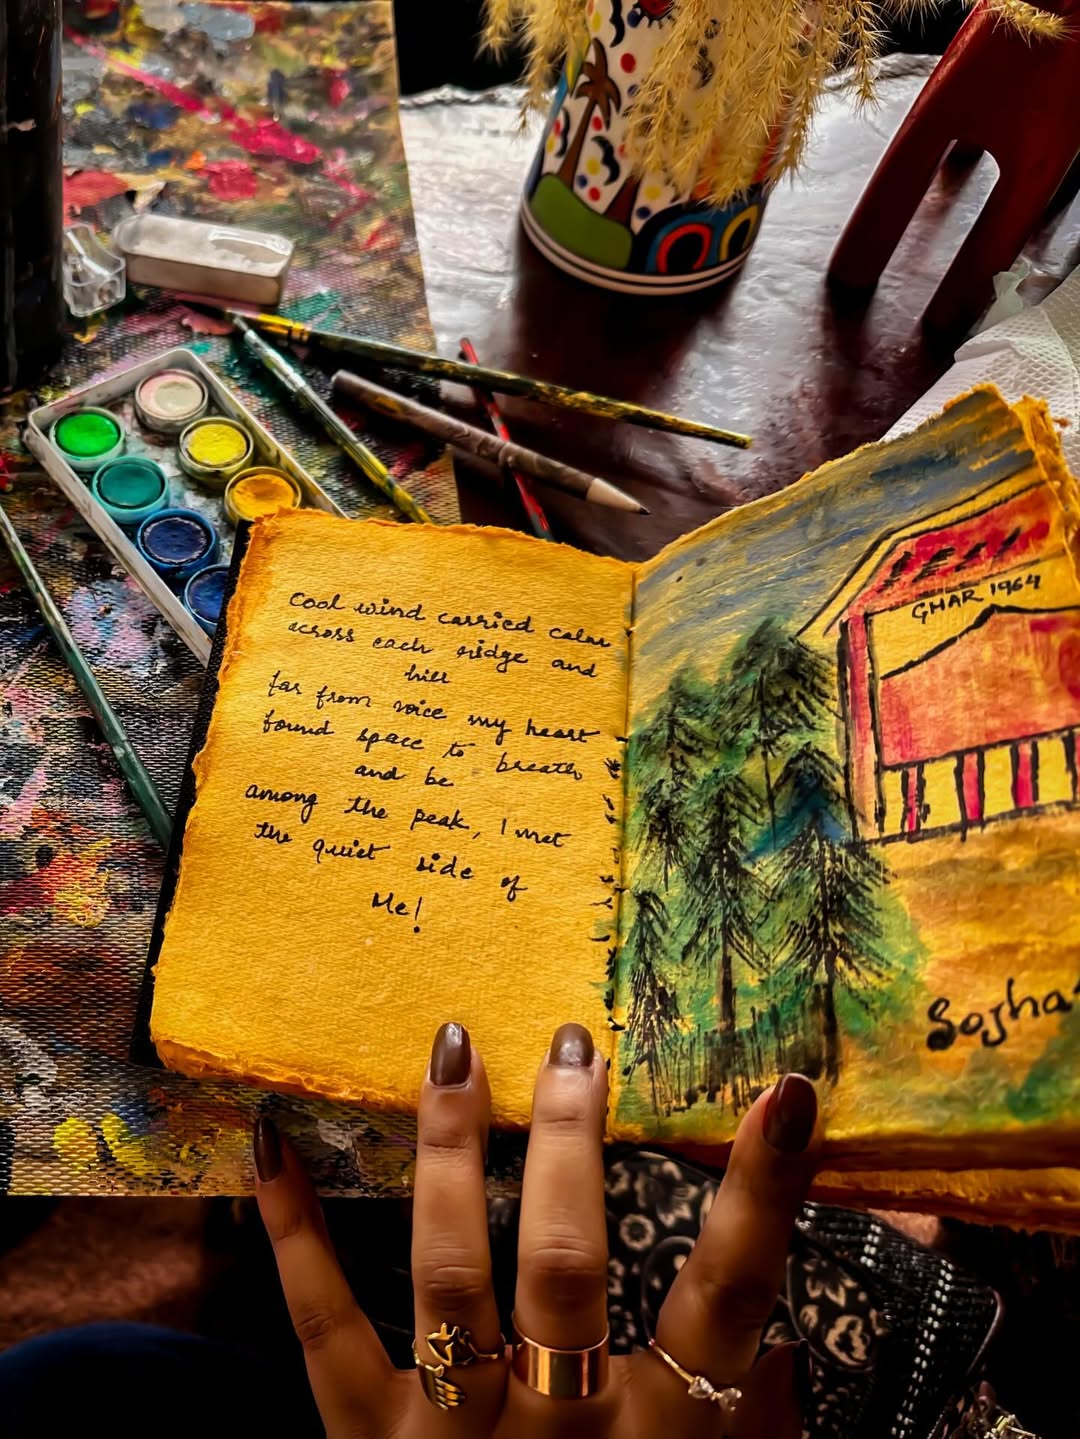 Cool wind carried calm
across each ridge and
hill
far from noice my heart
found space to breath
and be
among the peak, I met
the quiet side of
Me!
GHAR 1964
Sojha